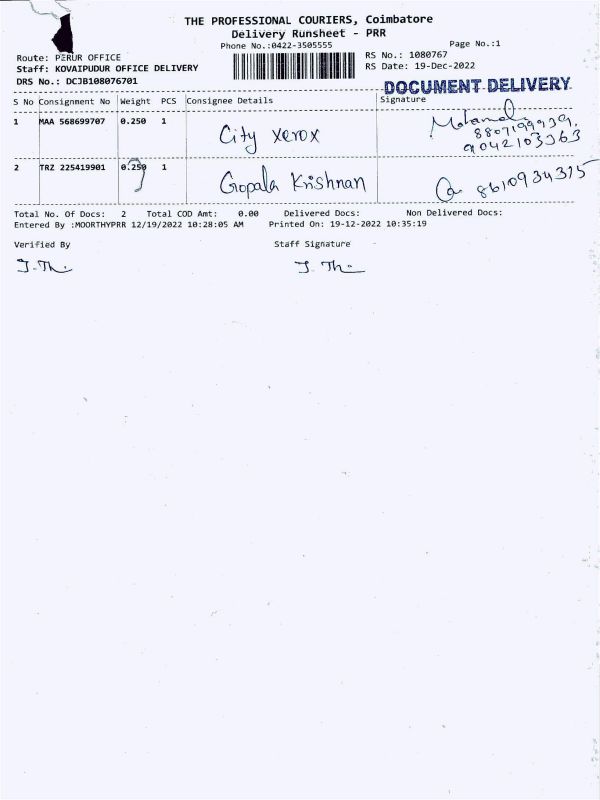 THE PROFESSIONAL COURIERS, Coimbatore
Delivery Runsheet - PRR
Phone No.:0422-3505555 Page No.:1
Route: PERUR OFFICE RS No.: 1080767
Staff: KOVAIPUDUR OFFICE DELIVERY RS Date: 19-Dec-2022
DRS No.: DCJB108076701
DOCUMENT DELIVERY
S No Consignment No Weight PCS Consignee Details Signature
1 MAA 568699707 0.250 1 City Xerox 8807199939,
9042103363
2 TRZ 225419901 0.250 1 Gopala Krishnan 8610934315
Total No. Of Docs: 2 Total COD Amt: 0.00 Delivered Docs: Non Delivered Docs:
Entered By :MOORTHYPRR 12/19/2022 10:28:05 AM Printed On: 19-12-2022 10:35:19
Verified By Staff Signature